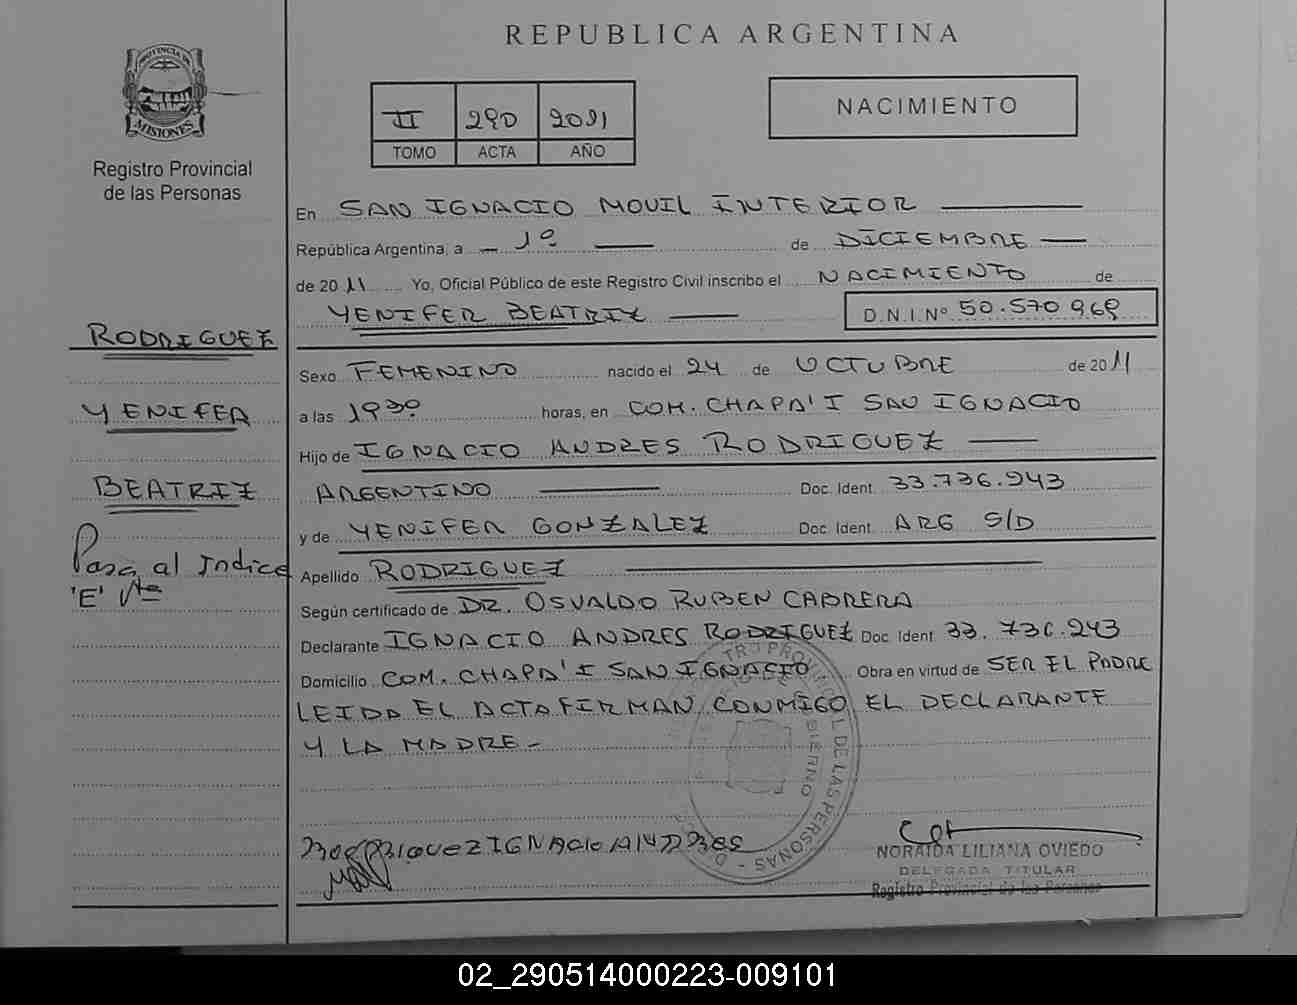 REPUBLICA ARGENTINA
PROVINCIA DE
MISIONES
Registro Provincial
de las Personas
II 290 2011
TOMO ACTA AÑO
NACIMIENTO
En SAN IGNACIO MOVIL INTERIOR
República Argentina, a 1º de DICIEMBRE
de 2011 Yo, Oficial Público de este Registro Civil inscribo el NACIMIENTO de
YENIFER BEATRIZ D.N.I.Nº 50.570.968
RODRIGUEZ
Sexo FEMENINO nacido el 24 de OCTUBRE de 2011
YENIFER
a las 1930 horas, en COM. CHAPA'I SAN IGNACIO
Hijo de IGNACIO ANDRES RODRIGUEZ
BEATRIZ
ARGENTINO Doc. Ident. 33.736.943
y de YENIFER GONZALEZ Doc. Ident. ARG S/D
Pasa al Indice
'E' Vta
Apellido RODRIGUEZ
Según certificado de DR. OSVALDO RUBEN CABRERA
Declarante IGNACIO ANDRES RODRIGUEZ Doc. Ident. 33.736.943
Domicilio COM. CHAPA'I SAN IGNACIO Obra en virtud de SER EL PADRE
LEIDA EL ACTA FIRMAN CONMIGO EL DECLARANTE
Y LA MADRE -
RODRIGUEZ IGNACIO ANDRES
NORAIDA LILIANA OVIEDO
DELEGADA TITULAR
Registro Provincial de las Personas
02_290514000223-009101